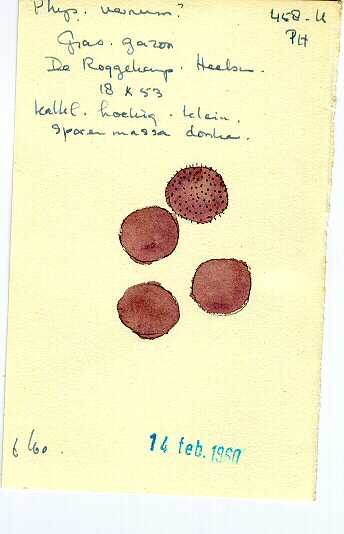 Phys. vernum?
458-N
PH
Gras. gazon
De Roggekamp. Heelsum.
18 X 53
Kalkl. hoekig. klein.
Sporenmassa donker.
6/60.
14 feb. 1960